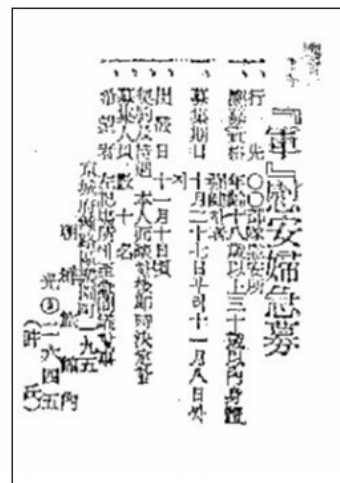 『軍』慰安婦急募
行先 ○○部隊慰安所
應募資格 年齡十八歲以上三十歲以內身體
强健者
募集期日 十月二十七日부터十一月八日까
지
出發日 十一月十日頃
契約及待遇 本人面談後卽時決定
募集人員 數十名
希望者 左記場所에至急問議事
京城府鍾路區樂園町一九五
朝鮮旅館內
光③二六四五
(許氏)